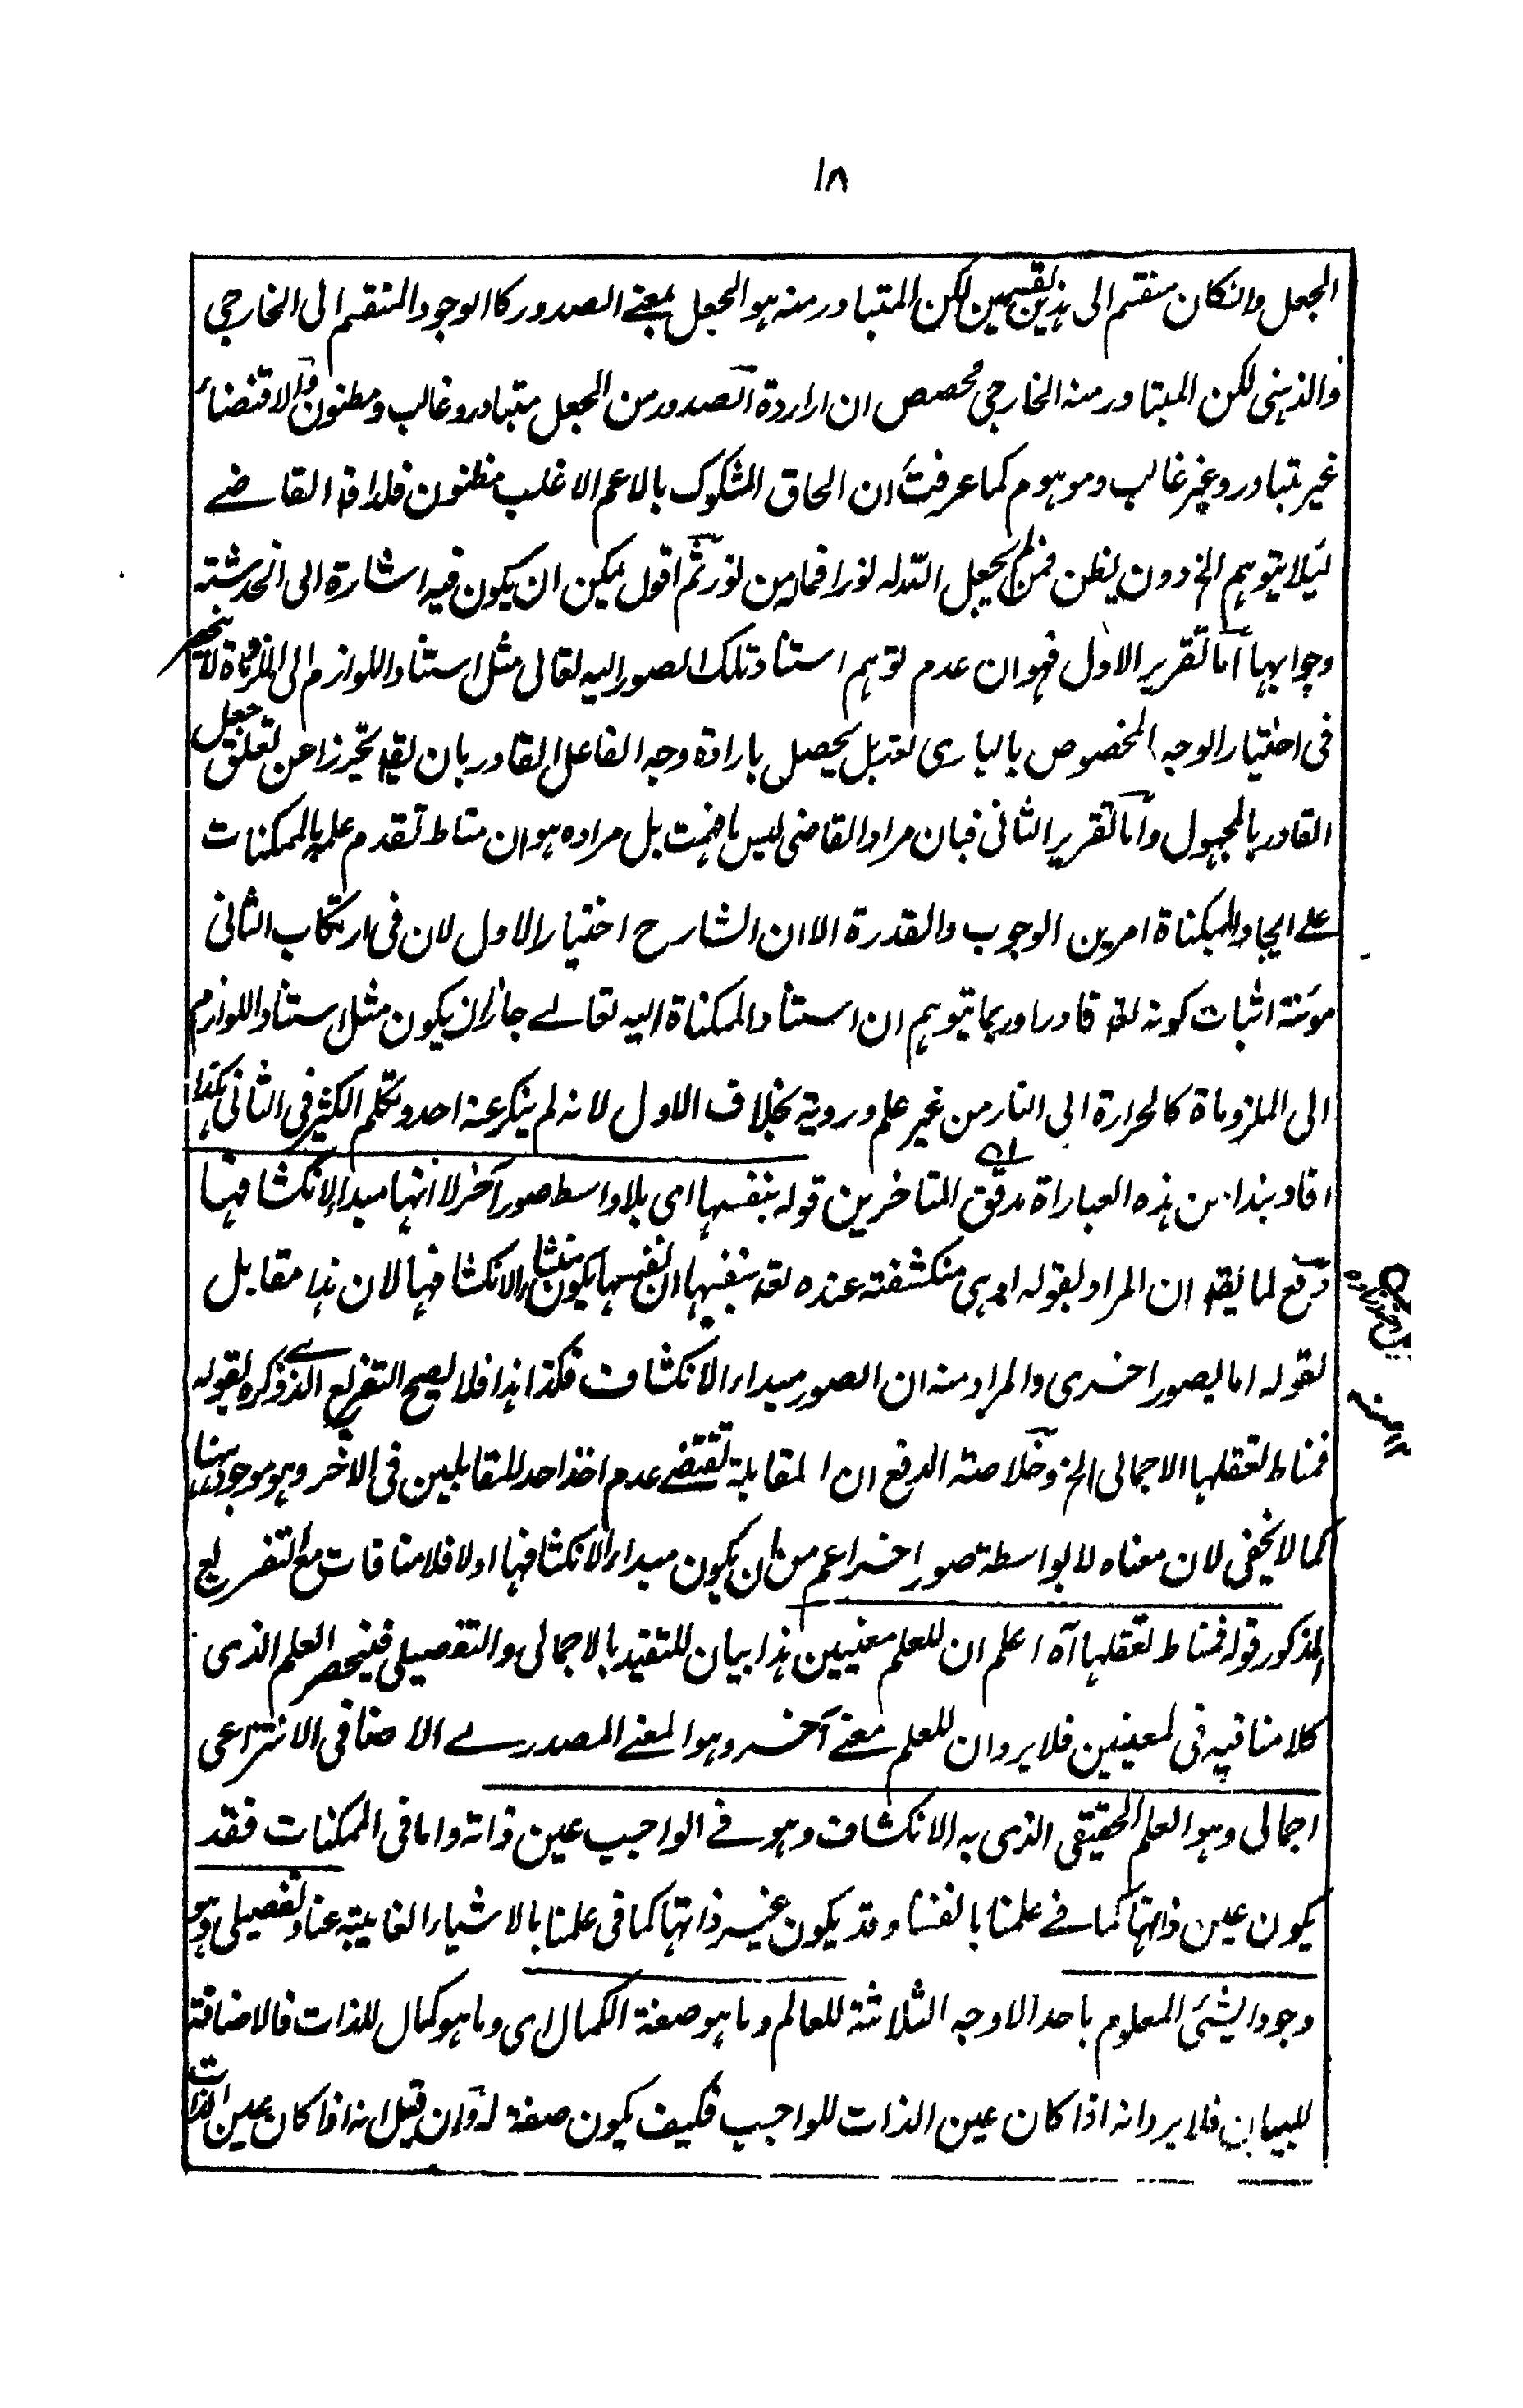 ١٨
الجعل وانكان منقسم الى هذين القسمين لكن المتبادر منه هو الجعل بمعنے الصدور كالوجود المنقسم الى الخارجي
والذهنى لكن المبتادر منه الخارجي محصص ان ارادة الصدور من الجعل متبادر وغالب ومظنون والاقتضاء
غير متبادر وغير غالب وموهوم كما عرفت ان الحاق المشكوك بالاعم الاغلب مظنون فلذا قال القاضے
ليلا يتوهم الخ دون يظن فمن لم يجعل الله له نورا فماله من نور ثم اقول يمكن ان يكون فيه اشارة الى الخدشته
وجوابها اما تقرير الاول فهو ان عدم توهم استناد تلك الصور اليه تعالى مثل استناد اللوازم الى الملزوماة لا ينحصر
فى اختيار الوجه المخصوص بالبارى تعه بل يحصل بارادة وجه الفاعل القادر بان يقه تحرزا عن تعلق جعل
القادر بالمجهول واما تقرير الثانى فبان مراد القاضى ليس ما فهمت بل مراده هو ان مناط تقدم علمه بالممكنات
علے ايجاد الممكناة امرين الوجوب والقدرة الا ان الشارح اختيار الاول لان فى ارتكاب الثانى
مؤنة اثبات كونه تعه قادرا وربما يتوهم ان استناد الممكناة اليه تعالے جاز ان يكون مثل استناد اللوازم
الى الملزوماة كالحرارة الى النار من غير علم وروية بخلاف الاول لانه لم ينكر عنه احد وتكلم الكثير فى الثانى هكذا
افاد بهذا من هذه العباراة مدقق المتاخرين قوله بنفسها اى بلا واسط صور آخر لا انها مبدا الانكشافها
دفع لما يقه ان المراد بقوله او هى منكشفته عنده تعه بنفسها ان نفسها يكون منشاء الانكشافها لان هذا مقابل
لقوله اما بصور اخرى والمراد منه ان الصور مبداء الانكشاف فكذا هذا فلا يصح التفريع الذى ذكره بقوله
فمناط تعقلها الاجمالى الخ وخلاصته الدفع ان المقابلة تقتضے عدم اخذ احد المقابلين فى الآخر وهو موجود ههنا
كما لا يخفى لان معناه لا بواسطة صور اخر اعم من ان يكون مبداء الانكشافها اولا فلا منافات مع التفريع
المذكور قوله فمناط تعقلها آه اعلم ان للعلم معنيين هذا بيان للتقيد بالاجمالى والتفصيلى فينحصر العلم الذى
كلامنا فيه فى المعنيين فلا يرد ان للعلم معنے آخر وهو المعنے المصدرے الاضافى الانتزاعى
اجمالى وهو العلم الحقيقى الذى به الانكشاف وهو فے الواجب عين ذاته واما فى الممكنات فقد
يكون عين ذاتها كما فے علمنا بانفسنا وقد يكون غير ذاتها كما فى علمنا بالاشياء الغايبته عنا وتفصيلى وهو
وجود الشئى المعلوم باحد الاوجه الثلاثة للعالم وما هو صفة الكمال اى وما هو كمال للذات فالاضافة
للبيان فلا يرد انه اذا كان عين الذات للواجب فكيف يكون صفة له وان قيل انه اذا كان عين الذات